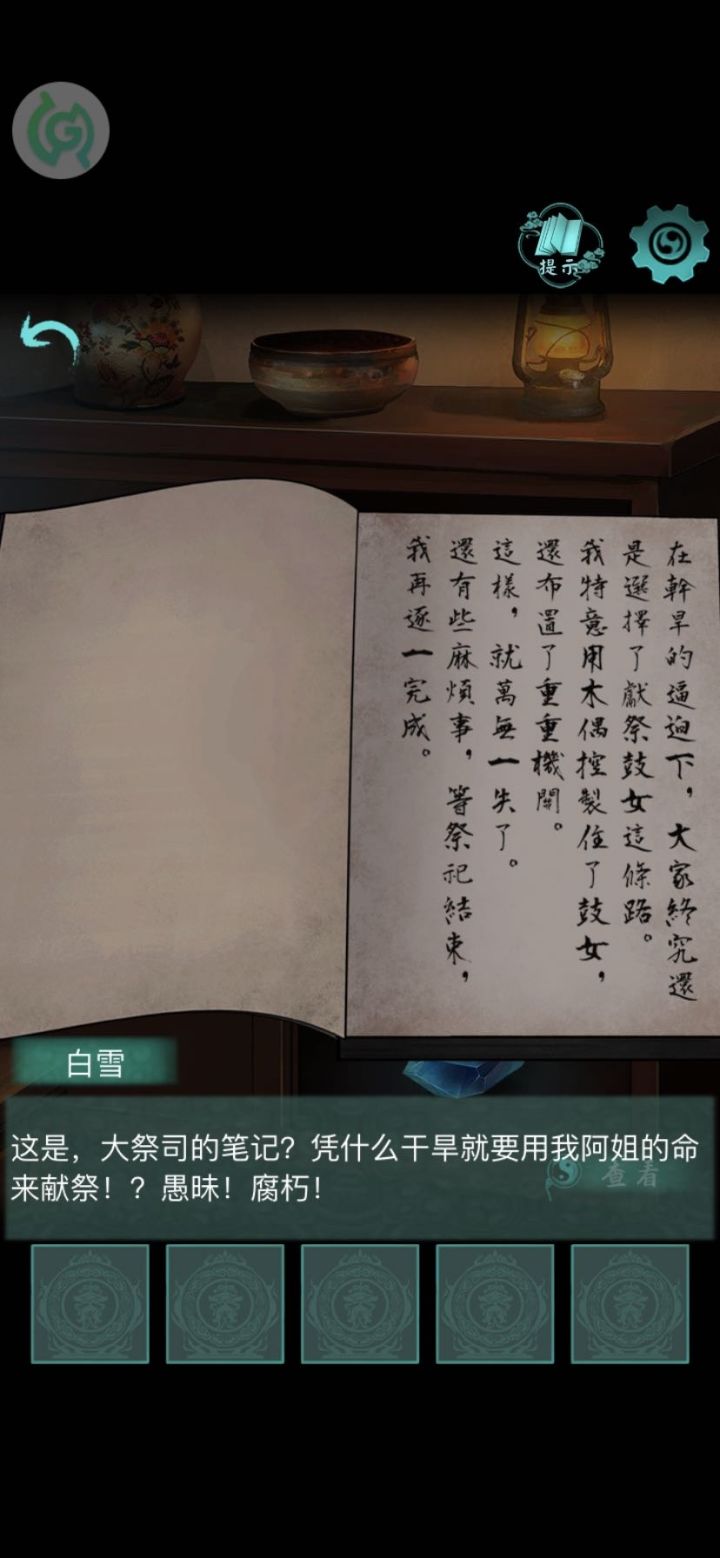 提示
在幹旱的逼迫下，大家終究還
是選擇了獻祭鼓女這條路。
我特意用木偶控製住了鼓女，
還布置了重重機關。
這樣，就萬無一失了。
還有些麻煩事，等祭祀結束，
我再逐一完成。
白雪
这是，大祭司的笔记？凭什么干旱就要用我阿姐的命
来献祭！？愚昧！腐朽！
查看